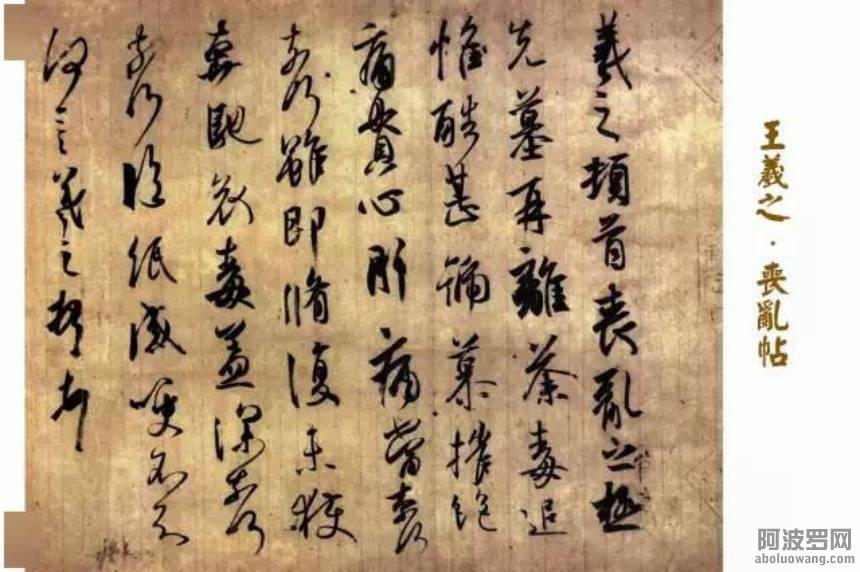 羲之頓首喪亂之極
先墓再離荼毒追
惟酷甚號慕摧絕
痛貫心肝痛當奈何
奈何雖即脩復未獲
奔馳哀毒益深奈何
奈何臨紙感哽不知
何言羲之頓首
王羲之·喪亂帖
阿波罗网
aboluowang.com